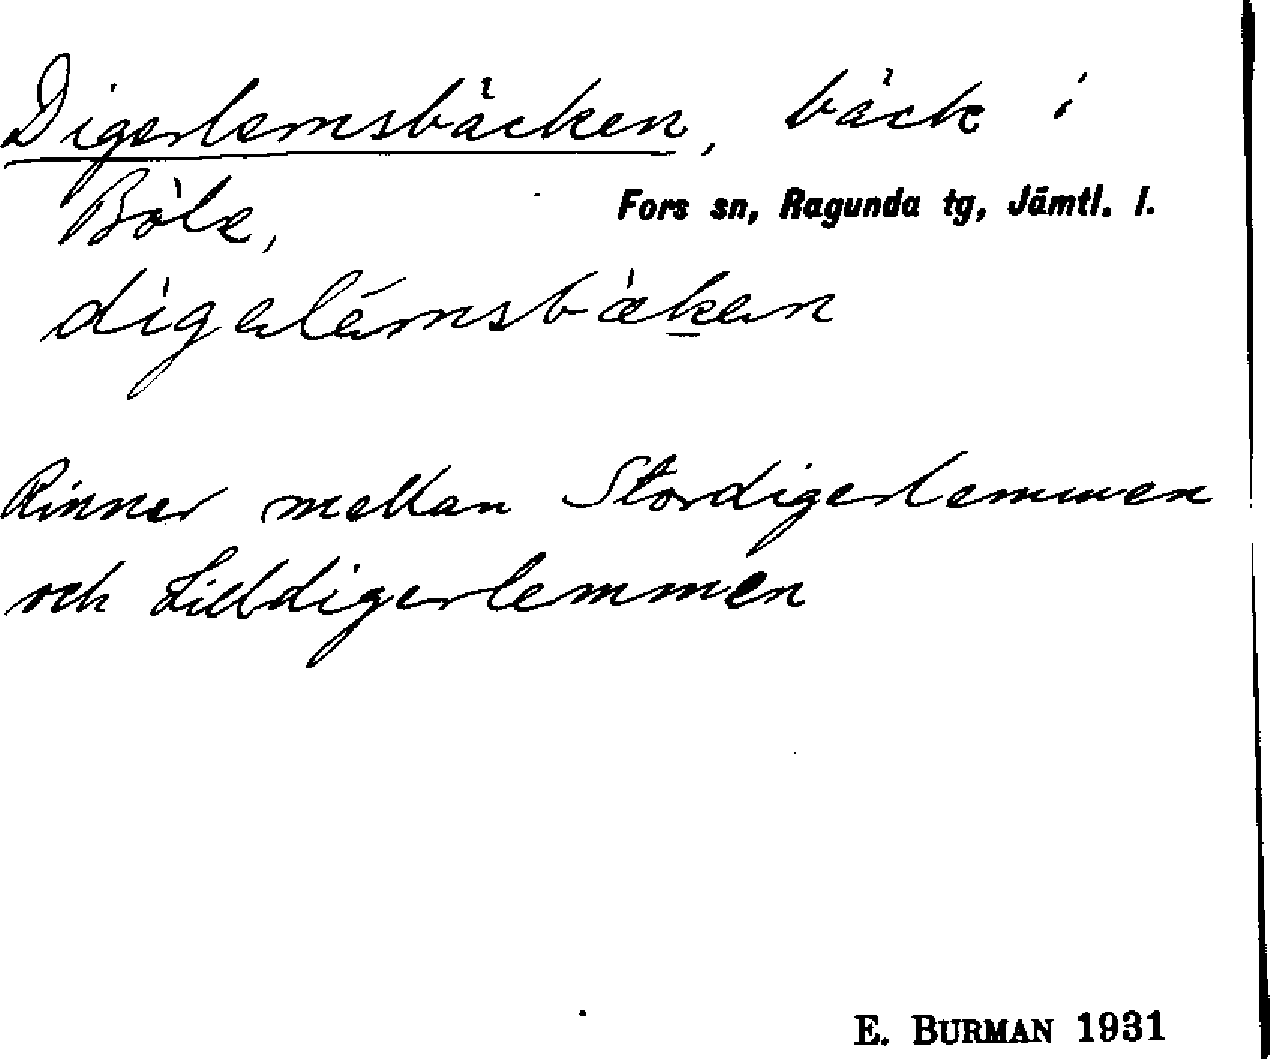 Digerlemsbäcken, bäck i
Böle, Fors sn, Ragunda tg, Jämtl. l.
digerlémsbäken
Rinner mellan Stordigerlemmen
och Lilldigerlemmen
E. BURMAN 1931